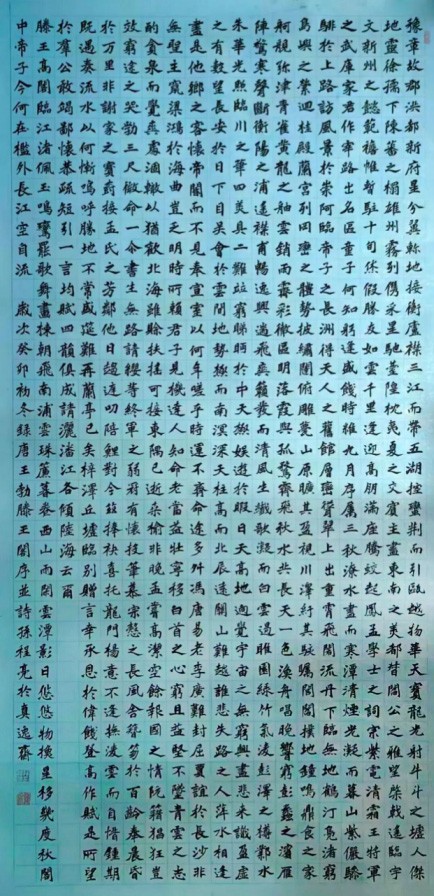 豫章故郡洪都新府星分翼軫地接衡廬襟三江而帶五湖控蠻荊而引甌越物華天寶龍光射牛斗之墟人傑
地靈徐孺下陳蕃之榻雄州霧列俊采星馳臺隍枕夷夏之交賓主盡東南之美都督閻公之雅望棨戟遙臨宇
文新州之懿範襜帷暫駐十旬休假勝友如雲千里逢迎高朋滿座騰蛟起鳳孟學士之詞宗紫電清霜王將軍
之武庫家君作宰路出名區童子何知躬逢勝餞時維九月序屬三秋潦水盡而寒潭清煙光凝而暮山紫儼驂
騑於上路訪風景於崇阿臨帝子之長洲得天人之舊館層巒聳翠上出重霄飛閣流丹下臨無地鶴汀鳧渚窮
島嶼之縈迴桂殿蘭宮列岡巒之體勢披繡闥俯雕甍山原曠其盈視川澤紆其駭矚閭閻撲地鐘鳴鼎食之家
舸艦彌津青雀黃龍之舳雲銷雨霽彩徹區明落霞與孤鶩齊飛秋水共長天一色漁舟唱晚響窮彭蠡之濱雁
陣驚寒聲斷衡陽之浦遙襟甫暢逸興遄飛爽籟發而清風生纖歌凝而白雲遏睢園綠竹氣凌彭澤之樽鄴水
朱華光照臨川之筆四美具二難並窮睇眄於中天極娛遊於暇日天高地迥覺宇宙之無窮興盡悲來識盈虛
之有數望長安於日下目吳會於雲間地勢極而南溟深天柱高而北辰遠關山難越誰悲失路之人萍水相逢
盡是他鄉之客懷帝閽而不見奉宣室以何年嗟乎時運不齊命途多舛馮唐易老李廣難封屈賈誼於長沙非
無聖主竄梁鴻於海曲豈乏明時所賴君子見機達人知命老當益壯寧移白首之心窮且益堅不墜青雲之志
酌貪泉而覺爽處涸轍以猶歡北海雖賒扶搖可接東隅已逝桑榆非晚孟嘗高潔空餘報國之情阮籍猖狂豈
效窮途之哭勃三尺微命一介書生無路請纓等終軍之弱冠有懷投筆慕宗愨之長風舍簪笏於百齡奉晨昏
於万里非謝家之寶樹接孟氏之芳鄰他日趨庭叨陪鯉對今茲捧袂喜托龍門楊意不逢撫凌雲而自惜鍾期
既遇奏流水以何慚嗚呼勝地不常盛筵難再蘭亭已矣梓澤丘墟臨別贈言幸承恩於偉餞登高作賦是所望
於羣公敢竭鄙懷恭疏短引一言均賦四韻俱成請灑潘江各傾陸海云爾
滕王高閣臨江渚佩玉鳴鸞罷歌舞畫棟朝飛南浦雲珠簾暮卷西山雨閒雲潭影日悠悠物換星移幾度秋閣
中帝子今何在檻外長江空自流 歲次癸卯初冬錄唐王勃滕王閣序並詩孫桂亮於真逸齋